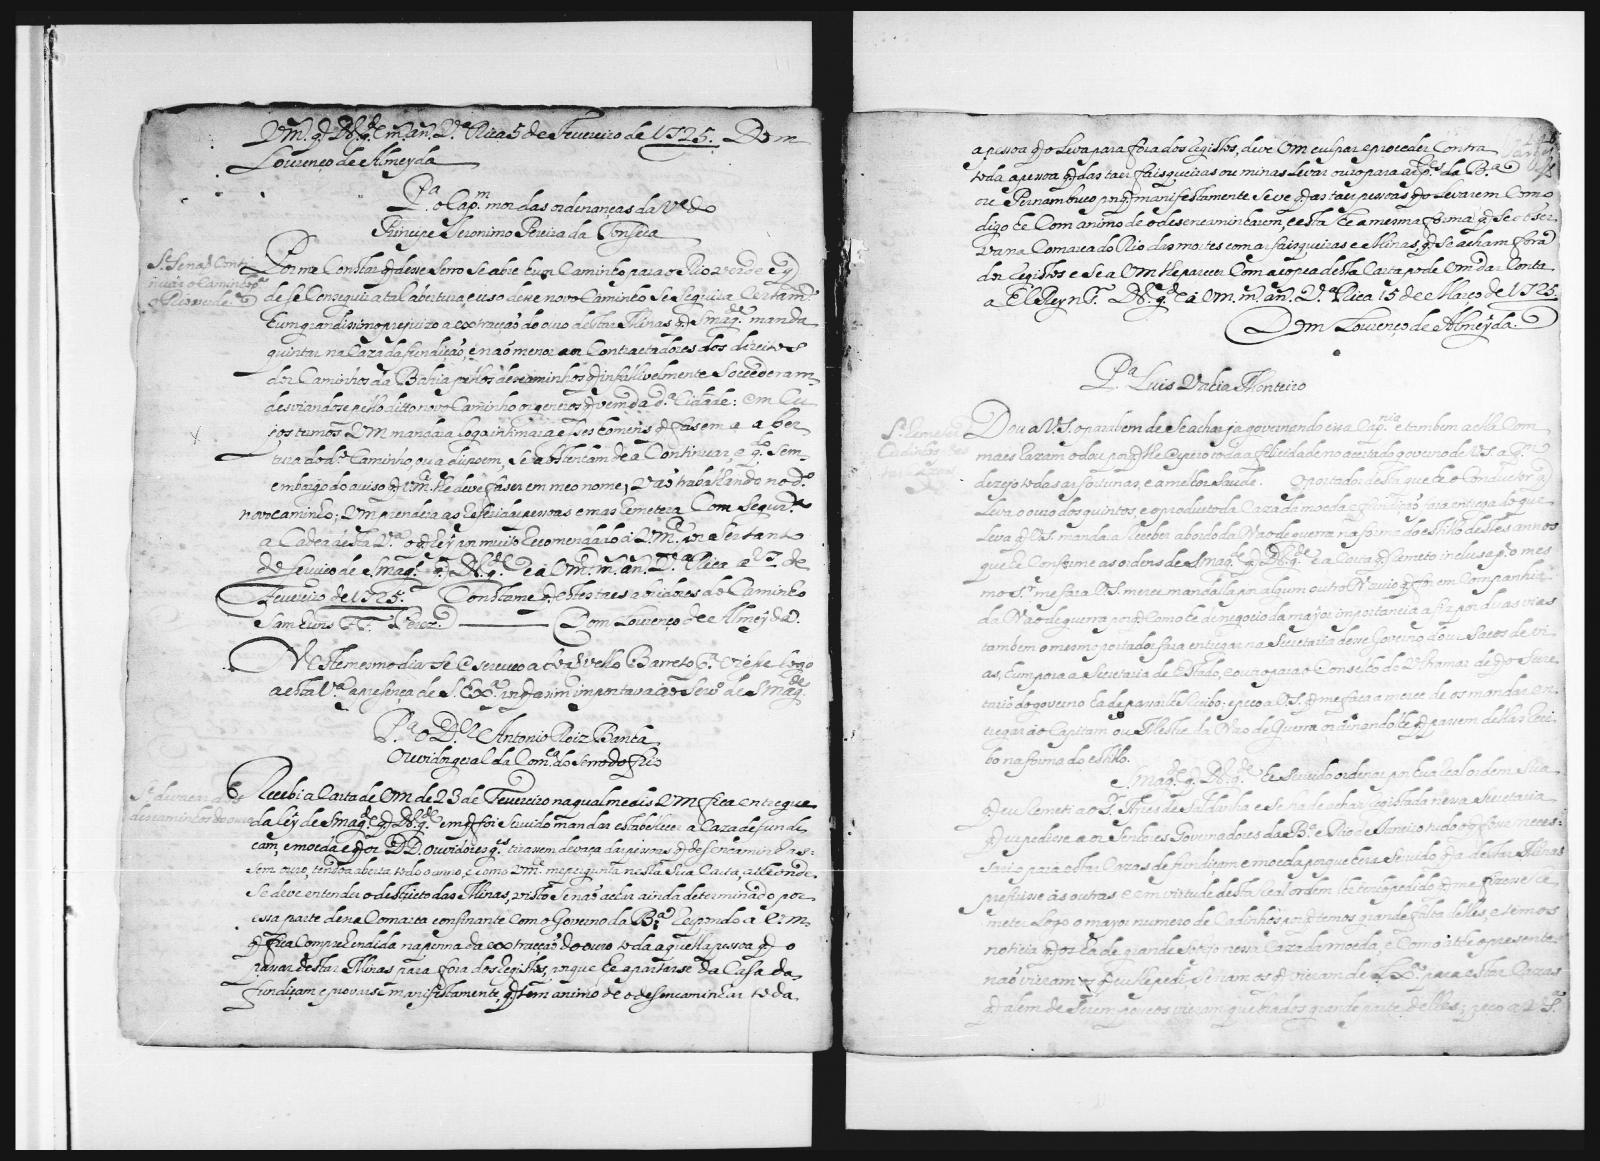 Vm. q̃ Ds. gde. m. an. Va. Rica 5 de Fevereiro de 1725. Dom
Lourenço de Almeyda
Pa. o Capm. mor das ordenanças da Va. do
Principe Jeronimo Pereira da Fonseca
Se. senaõ Conti
nuar o Caminho pa.
o Rio verde
Por me Constar q̃ desse serro se abre hum Caminho para o Rio verde e q̃
de se Conseguir a tal abertura, e uso desse novo Caminho se seguira Certamte.
hum grandissimo prejuizo a extracção do ouro destas Minas q̃ S. Magde. manda
quintar na Caza da fundição, e naõ menor aos Contractadores dos direitos
dos Caminhos da Bahia pellos descaminhos q̃ infallivelmente Socederam
desviandose pello ditto novo Caminho os generos q̃ vem da da. Cidade: em Cu
jos termos Vm mandará logo intimar a esses homens q̃ fasem a aber
tura do do. Caminho, ou a dispoem, se abstenham de a Continuar, e qdo. Sem
embargo do aviso q̃ Vm. lhe deve faser em meo nome, vaõ trabalhando no do.
novo caminho; Vm prenderá as referidas pessoas e mas remeterá Com Segurca.
a Cadea desta Va. o q̃ hey por muito recomendado a Vm. por ser tanto
do serviço de S. Magde. q̃ Ds. gde. e a Vm. m. an. Va. Rica a 7. de
Fevereiro de 1725. Constame q̃ estes taes abridores do Caminho
Sam huns Perez. Dom Lourenço de Almeyda.
Neste mesmo dia se escreveo a Carvello Barreto pa. vir logo
a esta Va. a presença de S. Exa. por q̃ assim importava ao Servo. de S Magde.
Pa. o Dr. Antonio Roiz Banha
Ouvidor geral da Comca. do Serro do frio
Se. devaçar dos
descaminhos do ouro
Recebi a Carta de Vm de 23 de Fevereiro na qual me dis Vm fica entregue
da ley de S Magde. q̃ Ds. gde. em q̃ foi servido mandar establecer a Caza de fundi
çam, e moeda e q̃ os DD. ouvidores gs. tirassem devaça das pessoas q̃ desencaminhas-
sem ouro, tendoa aberta todo o anno, e como Vm. me pergunta nesta sua Carta, athe onde
se deve entender o destricto das Minas, visto se naõ achar ainda determinado por
essa parte dessa Comarca confinante com o Governo da Ba. respondo a Vm.
q̃ fica comprehendida na penna da extracçaõ do ouro toda aquella pessoa q̃ o
passar destas Minas para fora dos registos, porque he apartarse da Casa da
fundiçam e provarse manifestamente, q̃ tem animo de o desencaminhar toda
a pessoa q̃ o leva para fora dos registos, deve Vm culpar e proceder Contra
toda a pessoa q̃ das taes faisqueiras ou minas levar ouro para as ps. da Ba.
ou Pernambuco por q̃ manifestamente se ve q̃ as taes pessoas q̃ o levarem Como
digo he Com animo de o desencaminharem, e esta he a mesma forma q̃ se obser
va na Comarca do Rio das mortes com as faisqueiras e Minas, q̃ se acham fora
dos registos e se a Vm lhe parecer Com a copea desta Carta pode Vm dar Conta
a El Rey N. Sr. Ds. gde. a Vm. m. an. Va. Rica 15 de Março de 1725.
Dom Lourenço de Almeyda.
Pa. Luis Vahia Monteiro
Se. remeter
Cadinhos pa.
estas Cazas
Dou a V.S. o parabem de se achar ja governando essa Capnia. e tambem a ella Com
mais razam o dou por q̃ lhe espero toda a felicidade no acertado governo de V.S. a qm.
desejo todas as fortunas, e a melhor saude. O portador desta que he o Conductor q̃
leva o ouro dos quintos, e o producto da Caza da moeda e fundiçaõ fará entrega do que
leva q̃ V.S. mandará receber a bordo da Nao de guerra na forma do estillo destes annos
que he Conforme as ordens de S Magde. q̃ Ds. gde. e a Carta q̃ remeto inclusa pa. o mes
mo Sr. me fara V.S. merce mandalla por algum outro Navio q̃ for em Companhia
da Nao de guerra por q̃ Como he de negocio da mayor importancia a fiz por duas vias
tambem o mesmo portador fará entregar na Secretaria desse Governo dous Sacos de vi
as, hum para a Secretaria de Estado, e outro para o Conselho de Ultramar de q̃ o Secre
tario do governo ha de passar lhe recibo; e peço a V.S. q̃ me faça a merce de os mandar en
tregar ao Capitam ou Mestre da Nao de Guerra ordenandolhe q̃ passem dellas reci
bo na forma do estillo.
S. Magde. q̃ Ds. gde. he servido ordenar por hua real ordem sua
q̃ eu remeti ao Sr. Ayres de Saldanha e se ha de achar registada nessa Secretaria
q̃ eu pedisse aos Senhores Governadores da Ba. e Rio de Janeiro tudo o q̃ fosse neces-
sario para estas Cazas de fundiçam e moeda porque hera servido q̃ a destas Minas
preferisse ás outras e em virtude desta real ordem lhe tenho pedido q̃ me fizesse re
meter logo o mayor numero de Cadinhos por q̃ temos grande falta delles, e temos
noticia q̃ os ha de grande sorte nessa Caza da moeda, e Como athe o presente
naõ vieram
q̃ alem de serem poucos vieram quebrados grande parte delles; peço a V.S.